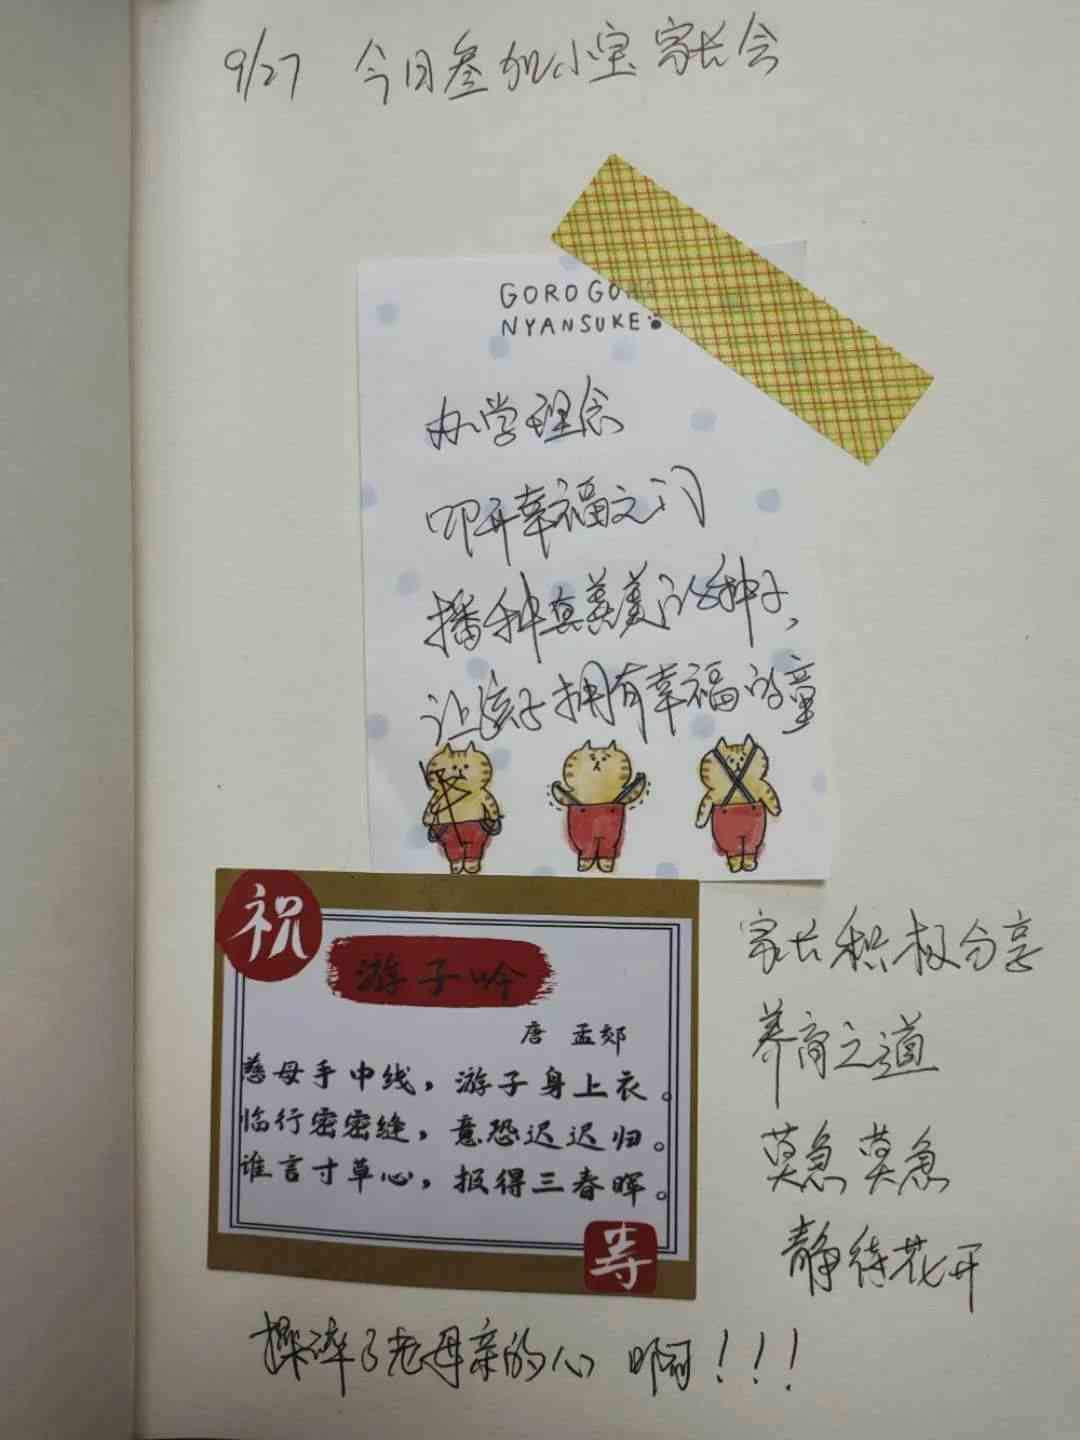 9/27 今日参加小宝家长会
GORO GO
NYANSUKE
办学理念
叩开幸福之门
播种真善美的种子,
让孩子拥有幸福的童
年
祝
游子吟
唐 孟郊
慈母手中线，游子身上衣。
临行密密缝，意恐迟迟归。
谁言寸草心，报得三春晖。
寿
家长积极分享
养育之道
莫急莫急
静待花开
操碎了老母亲的心 啊!!!